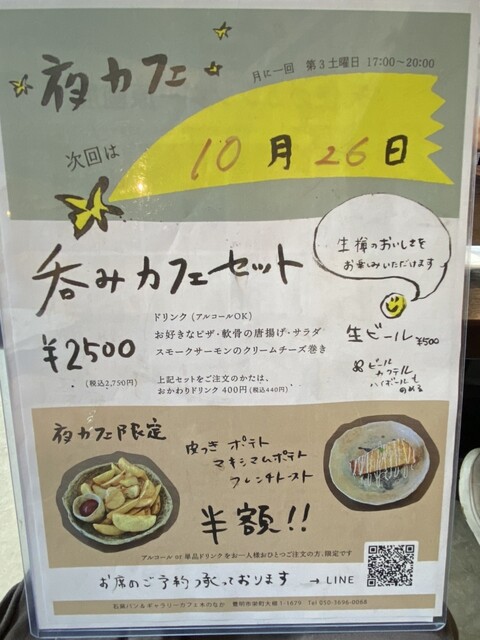 夜カフェ
月に一回 第3土曜日 17:00〜20:00
次回は
10月26日
生樽のおいしさを
お楽しみいただけます
呑みカフェセット
¥2500
(税込2,750円)
ドリンク (アルコールOK)
お好きなピザ・軟骨の唐揚げ・サラダ
スモークサーモンのクリームチーズ巻き
上記セットをご注文のかたは、
おかわりドリンク 400円 (税込440円)
生ビール ¥500
ビール
カクテル
ハイボールも
夜カフェ限定
皮つき ポテト
マキシマムポテト
フレンチトースト
半額!!
アルコール or 単品ドリンクをお一人様おひとつご注文の方、限定です
お席のご予約承っております → LINE
石窯パン&ギャラリーカフェ木のなか 豊明市栄町大根1-1679 Tel 050-3696-0068